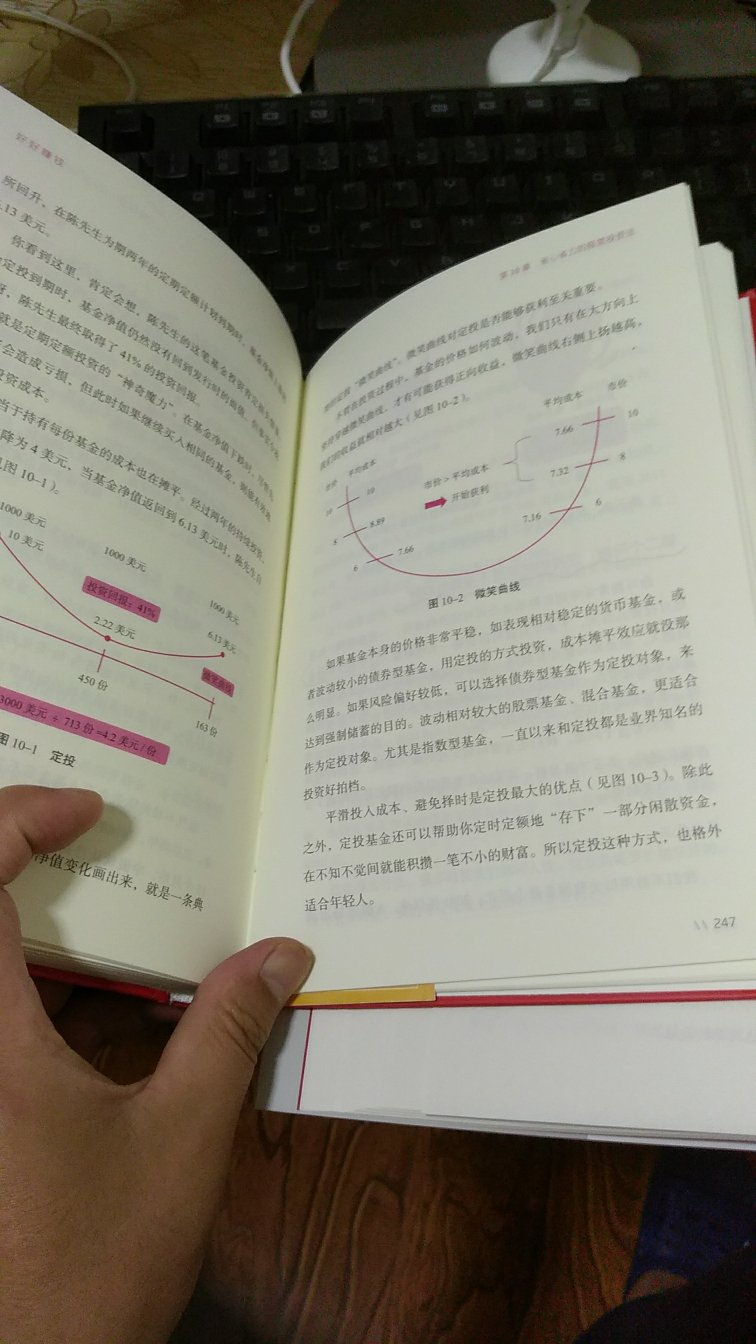 好好赚钱
所回升，在陈先生为期两年的定期定额计划到期时，基金净值
.13 美元。
你看到这里，肯定会想，陈先生的这笔基金投资肯定
定投到期时，基金净值仍然没有回到发行时的面值，
陈先生最终取得了 41% 的投资回报。
就是定期定额投资的“神奇魔力”。在基金净值下跌时，
会造成亏损，但此时如果继续买入相同的基金，则能有效地
投资成本。
当于持有每份基金的成本也在摊平。经过两年的持续投资，
降为 4 美元，当基金净值返回到 6.13 美元时，陈先生自
见图 10-1）。
1000 美元
10 美元
1000 美元
投资回报：41%
2.22 美元
1000 美元
6.13 美元
微笑曲线
450 份
163 份
3000 美元 ÷ 713 份 =4.2 美元 / 份
图 10-1 定投
净值变化画出来，就是一条典
第 10 章 省心省力的傻瓜投资法
型的定投“微笑曲线”。微笑曲线对定投是否能够获利至关重要。
不管在投资过程中，基金的价格如何波动，我们只有在大方向上
坚持穿越微笑曲线，才有可能获得正向收益，微笑曲线右侧上扬越高，
我们的收益就相对越大（见图 10-2）。
市价
平均成本
10
10
8
8.89
6
7.66
市价 > 平均成本
开始获利
平均成本
市价
7.66
10
7.32
8
7.16
6
图 10-2 微笑曲线
如果基金本身的价格非常平稳，如表现相对稳定的货币基金，或
者波动较小的债券型基金，用定投的方式投资，成本摊平效应就没那
么明显。如果风险偏好较低，可以选择债券型基金作为定投对象，来
达到强制储蓄的目的。波动相对较大的股票基金、混合基金，更适合
作为定投对象。尤其是指数型基金，一直以来和定投都是业界知名的
投资好拍档。
平滑投入成本、避免择时是定投最大的优点（见图 10-3）。除此
之外，定投基金还可以帮助你定时定额地“存下”一部分闲散资金，
在不知不觉间就能积攒一笔不小的财富。所以定投这种方式，也格外
适合年轻人。
247